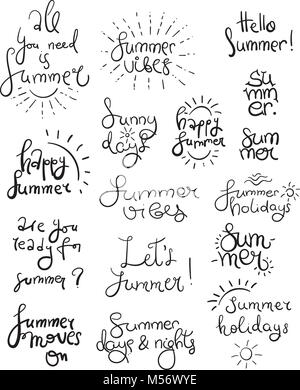 all
you need
is
Summer
Summer
vibes
Hello
Summer!
Su
mm
er.
Sunny
days
happy
Summer
Sum
mer
happy
Summer
Summer
vibes
Summer
holidays
are you
ready for
summer?
Let's
Summer!
Sum-
mer
Summer
holidays
Summer
moves
on
Summer
days & nights
alamy
Image ID: M56WYE
www.alamy.com